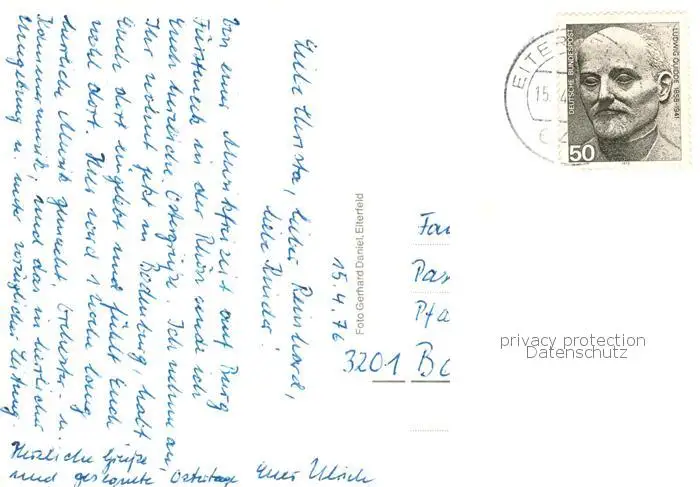 15.4.76
Liebe Christa, lieber Reinhard,
liebe Kinder!
Von einer Musikfreizeit auf Burg
Fürsteneck in der Rhön sende ich
Euch herzliche Ostergrüße. Ich nehme an,
Ihr wohnt jetzt in Bodenburg, habt
Euch dort eingelebt und fühlt Euch
wohl dort. Hier wird 1 Woche lang
herrliche Musik gemacht, Orchester- u.
Kammermusik, und das in herrlicher
Umgebung u. unter vorzüglicher Leitung.
Herzliche Grüße
und gesegnete Ostertage Euer Ulrich
Foto Gerhard Daniel, Eiterfeld
EITER
15. 4
DEUTSCHE BUNDESPOST
LUDWIG QUIDDE 1858-1941
50
Fa
Pas
Pfa
3201 Bo
privacy protection
Datenschutz